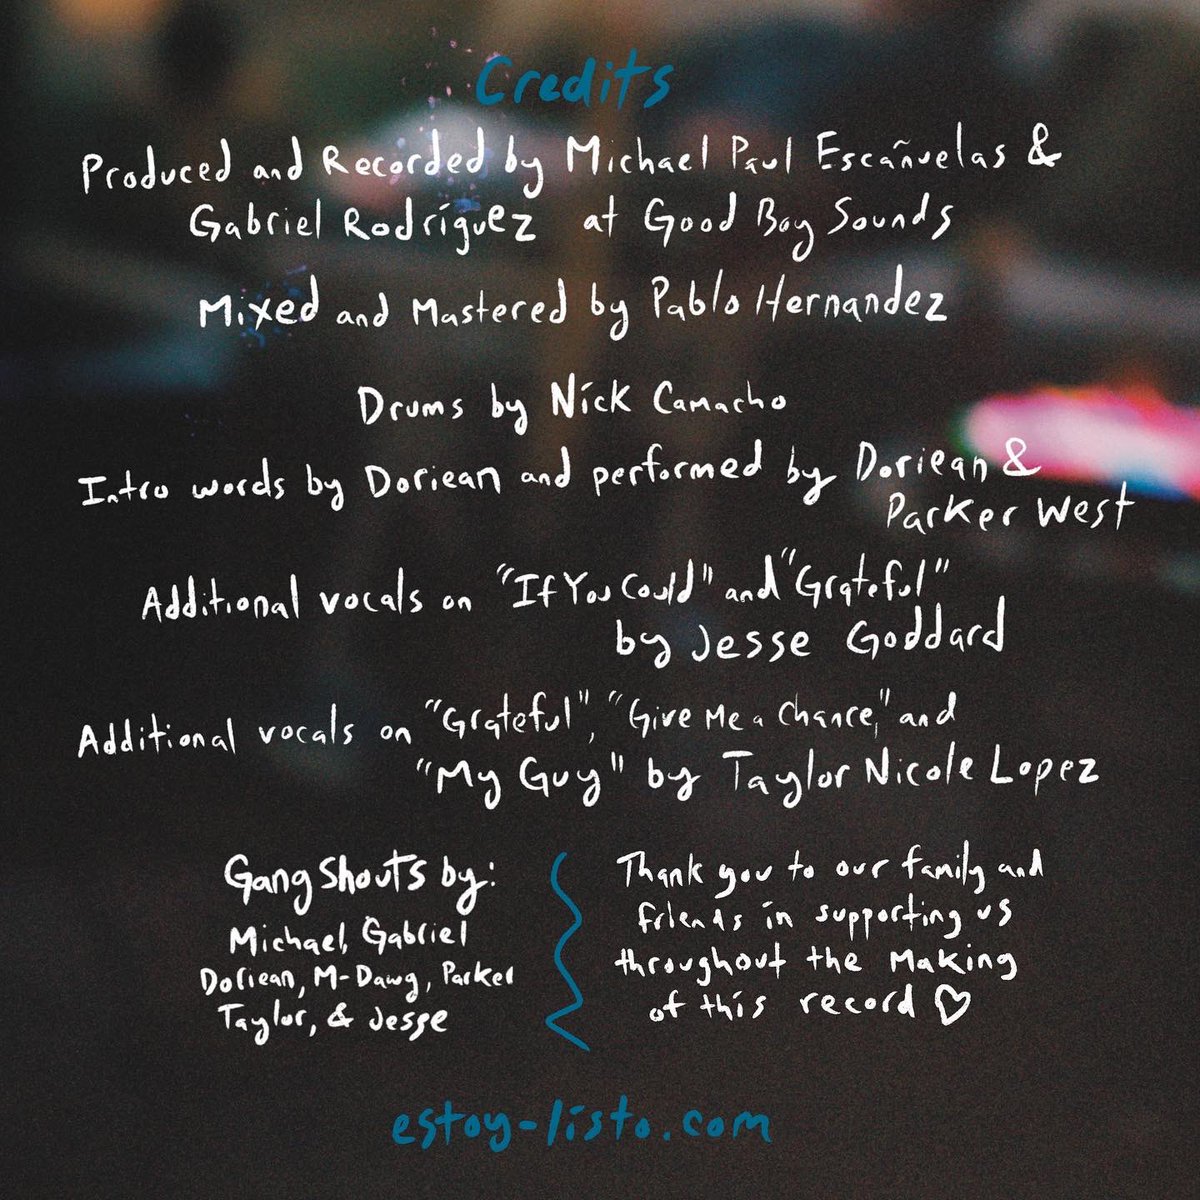 Credits
Produced and Recorded by Michael Paul Escañuelas &
Gabriel Rodríguez at Good Boy Sounds
Mixed and Mastered by Pablo Hernandez
Drums by Nick Camacho
Intro words by Doriean and performed by Doriean &
Parker West
Additional vocals on "If You Could" and "Grateful"
by Jesse Goddard
Additional vocals on "Grateful", "Give Me a Chance," and
"My Guy" by Taylor Nicole Lopez
Gang Shouts by:
Michael, Gabriel
Doriean, M-Dawg, Parker
Taylor, & Jesse
Thank you to our family and
friends in supporting us
throughout the making
of this record ♡
estoy-listo.com